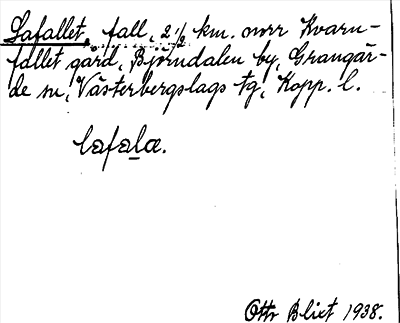 Lafallet, fall, 2 1/2 km. norr Kvarn-
fallet gård, Björndalen by, Grangär-
de sn, Västerbergslags tg, Kopp. l.
lafala.
Otto Blixt 1938.